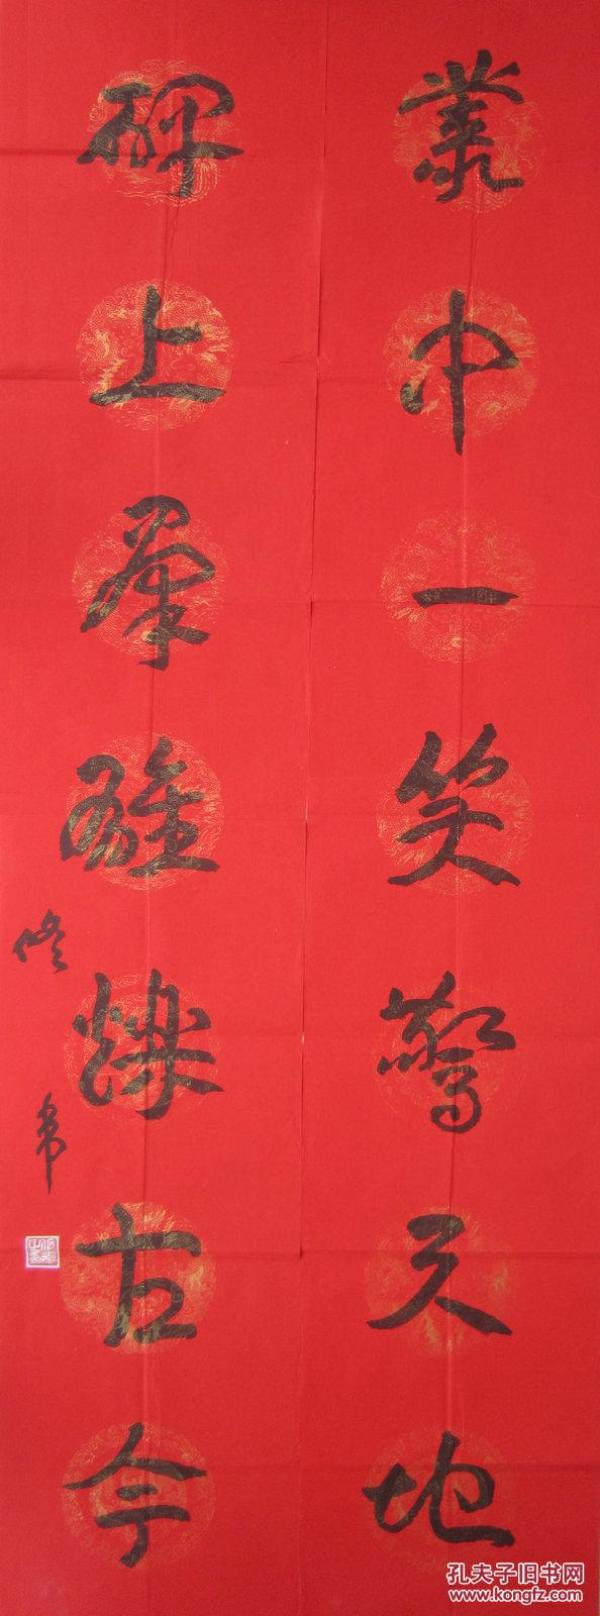 叢中一笑驚天地
碑上群雄爍古今
修常
孔夫子旧书网
www.kongfz.com